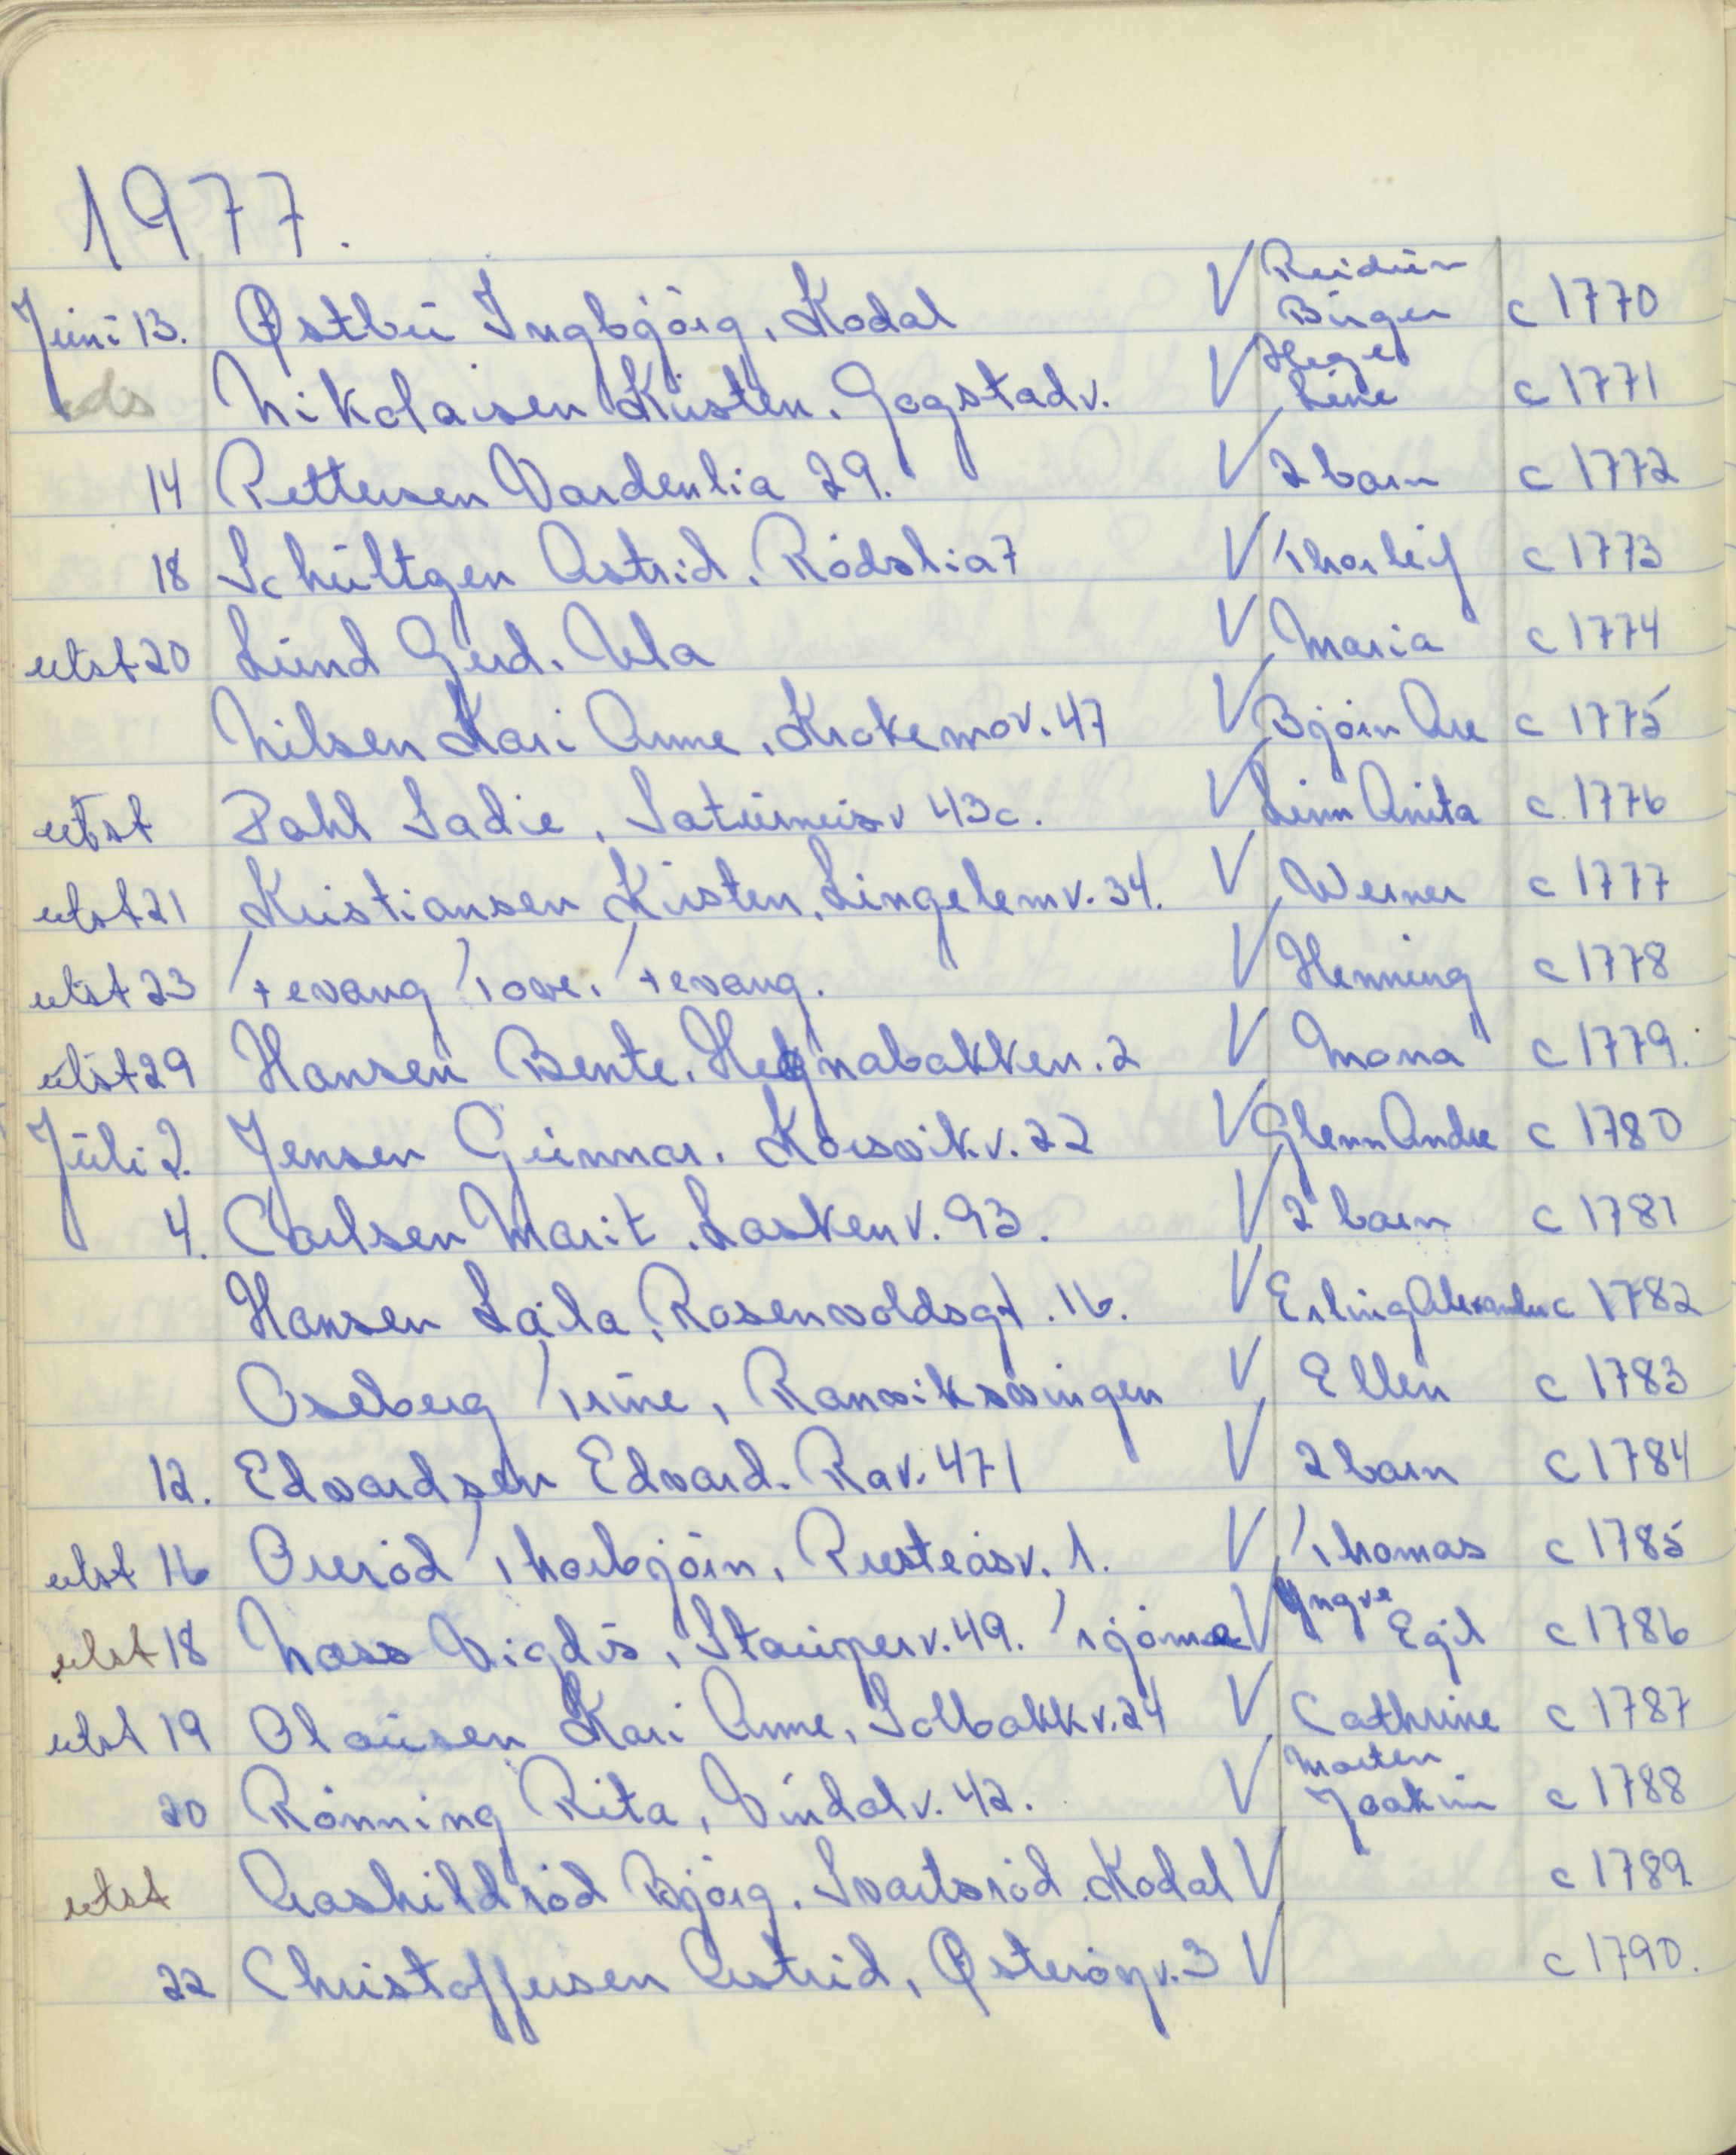 1977.
Reidun
Juni 13. Østbü Ingbjörg, Kodal V Birger c 1770
Hege
Nikolaisen Kirsten. Gogstadv. V Line c 1771
14 Pettersen Vardenlia 29. V 2 barn c 1772
18 Schültgen Astrid. Rödslia 7 V Thorleif c 1773
utst 20 Lünd Gerd. Ula V Maria c 1774
Nilsen Kari Anne, Krokemov. 47 V Björn Are c 1775
utst Dahl Sadie, Satürnusv 43c. V Linn Anita c. 1776
utst 21 Kristiansen Kirsten, Lingelemv. 34. V Werner c 1777
utst 23 Tevang Tove. Tevang. V Henning c 1778
utst 29 Hansen Bente. Hegnabakken. 2 V Mona c 1779.
Jüli 2. Jensen Günnar. Korsvikv. 22 V Glenn Andre c 1780
4. Carlsen Marit. Laskenv. 93. V 2 barn c 1781
Hansen Laila, Rosenvoldsgt. 16. V Erling Alexander c 1782
Oseberg Trine, Ranviksvingen V Ellen c 1783
12. Edvardsen Edvard. Rav. 471 V 2 barn c 1784
utst 16 Oreröd Thorbjörn, Presteåsv. 1. V Thomas c 1785
Yngve
utst 18 Noss Vigdis, Stauperv. 49. Tjöme V Egil c 1786
utst 19 Olaüsen Kari Anne, Solbakkv. 24 V Cathrine c 1787
Morten
20 Rönning Rita, Vindalv. 42. V Joakim c 1788
utst Aashildröd Björg. Svartsröd. Kodal V c 1789
22 Christoffersen Astrid, Østeröyv. 3 V c 1790.